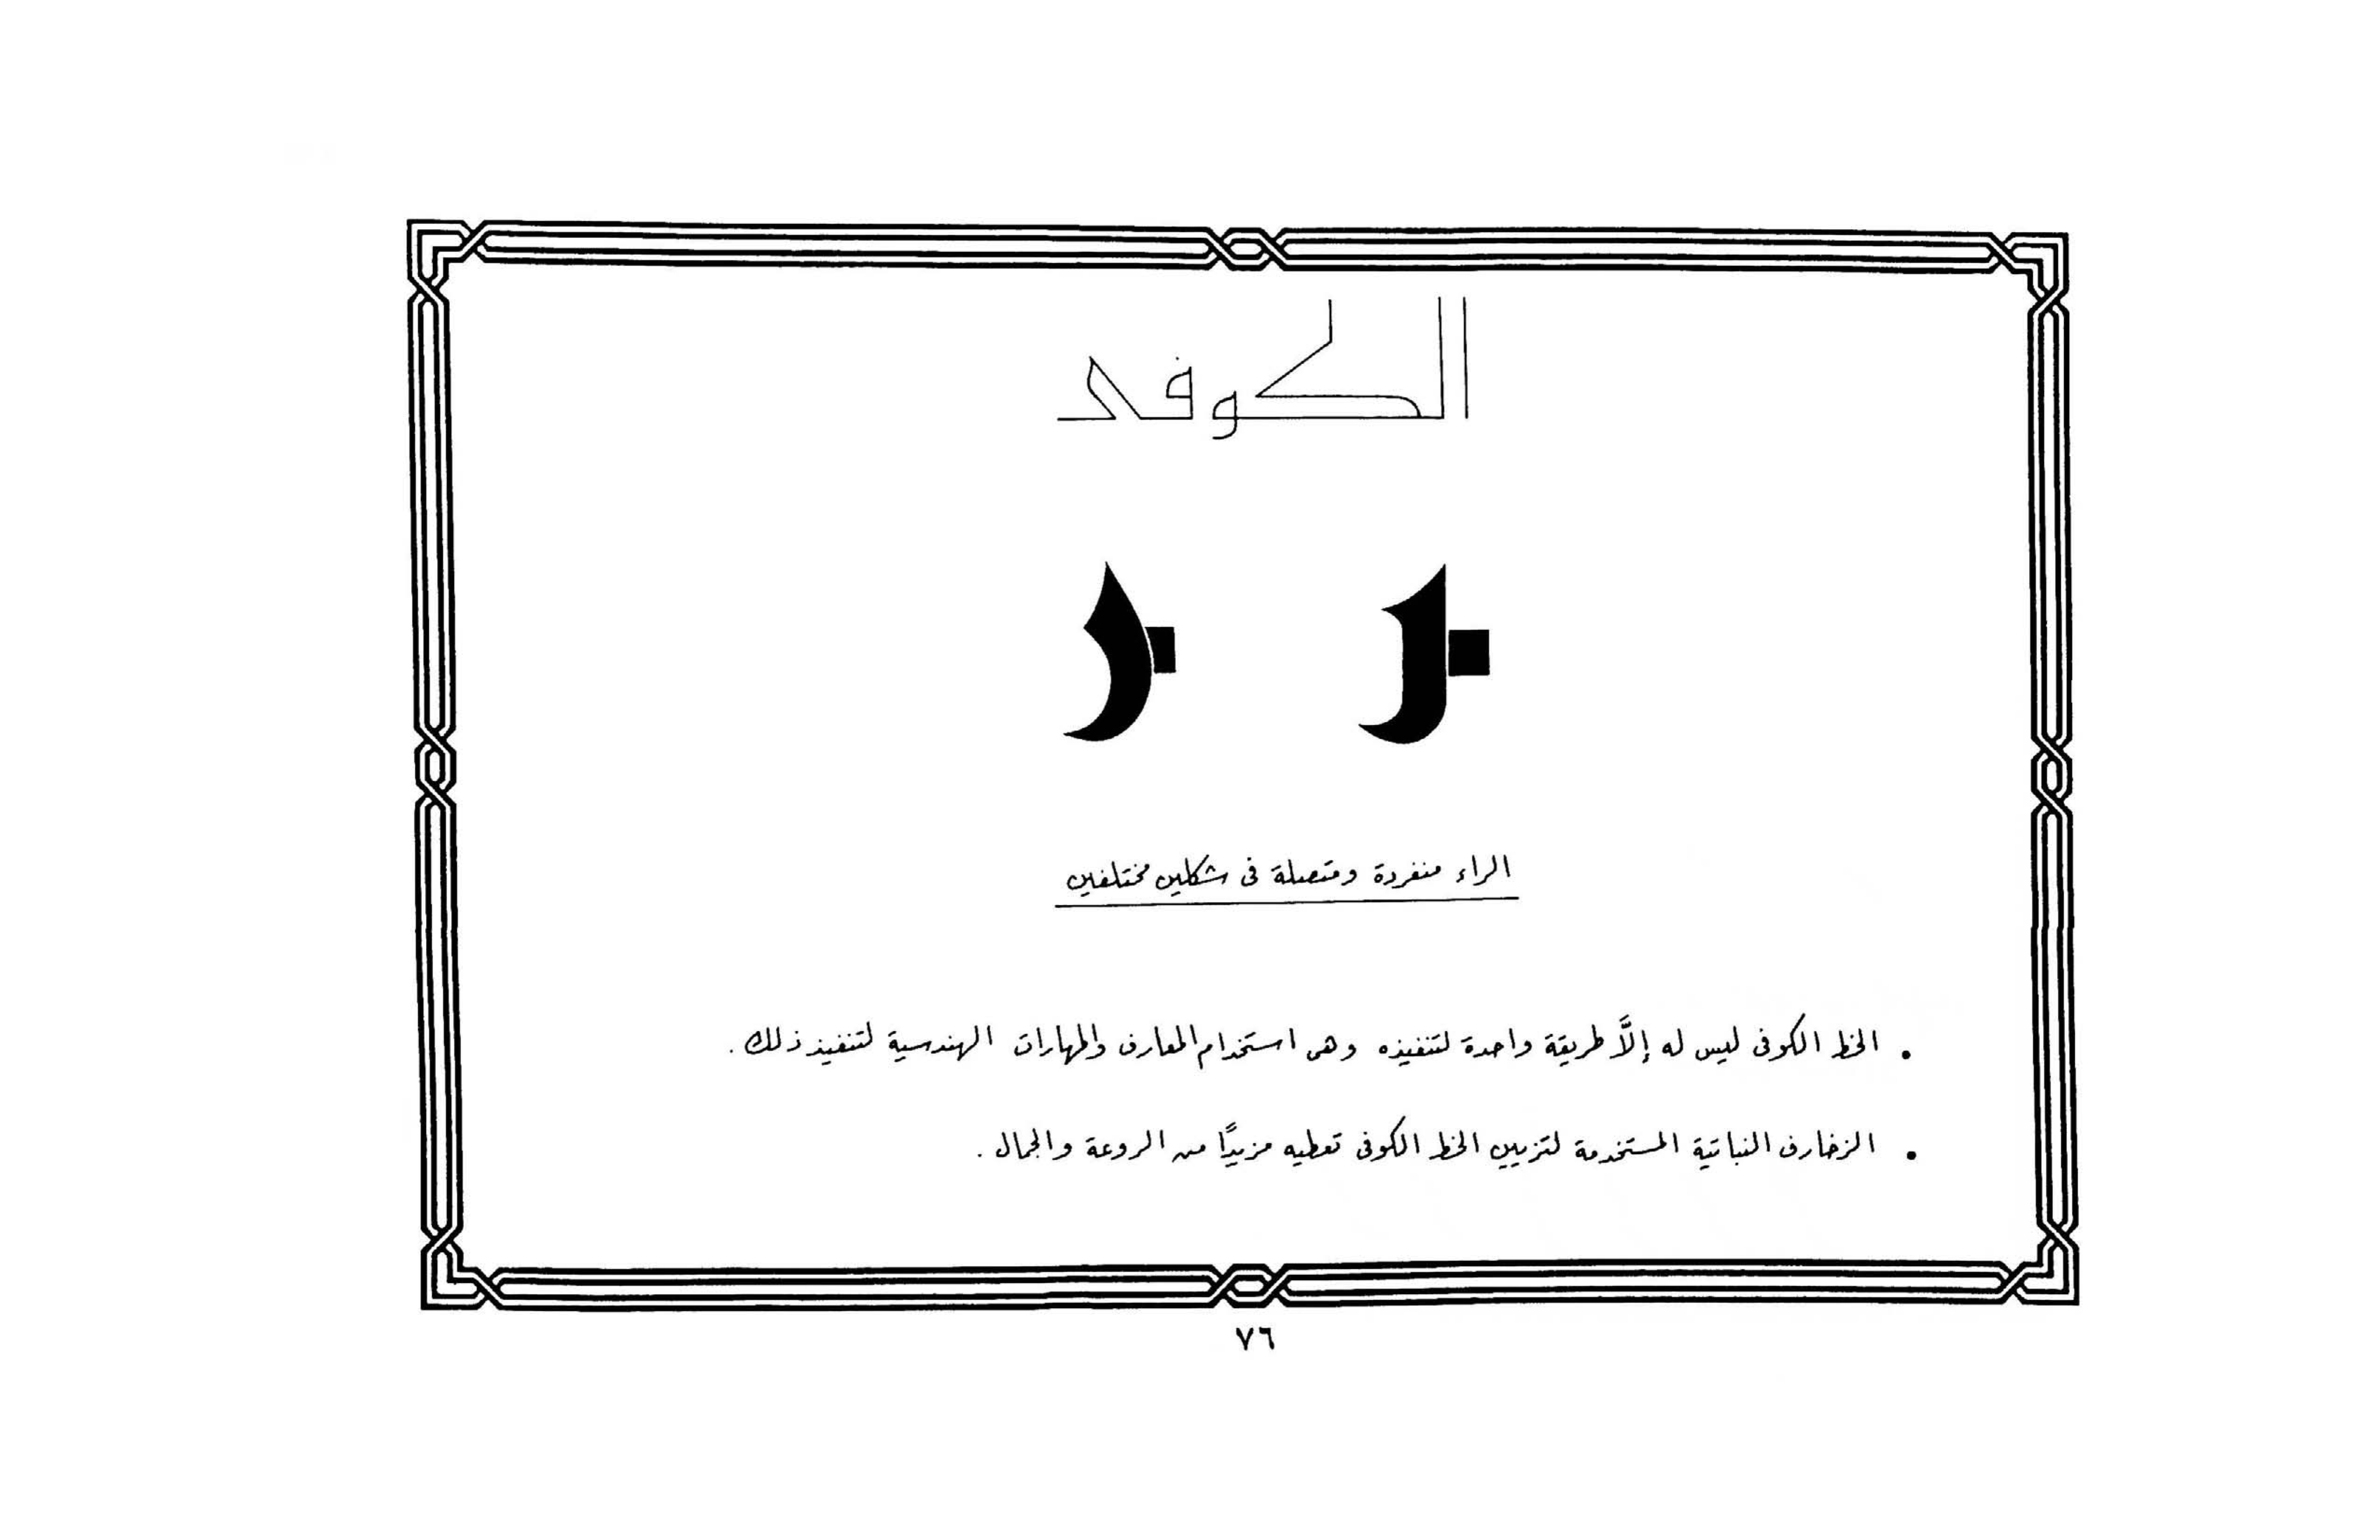 الكوفى
ر ر
الراء منفردة ومتصلة فى شكلين مختلفين
• الخط الكوفى ليس له إلاَّ طريقة واحدة لتنفيذه وهى استخدام المعارف والمهارات الهندسية لتنفيذ ذلك .
• الزخارف النباتية المستخدمة لتزيين الخط الكوفى تعطيه مزيدًا من الروعة والجمال .
٧٦